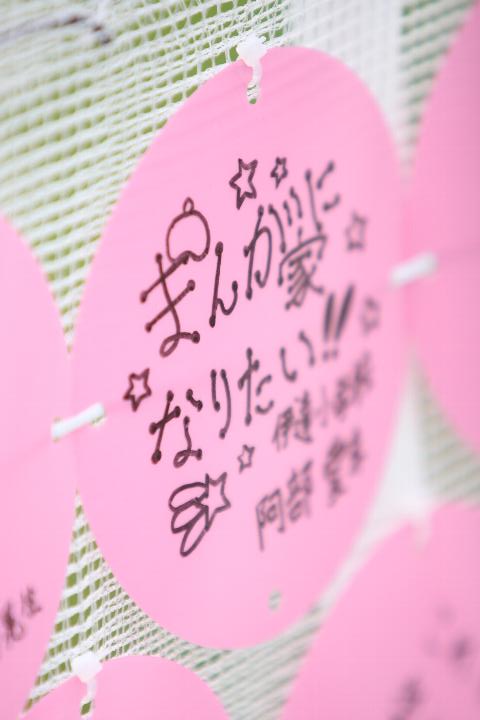 まんが家に
なりたい!!
伊達小学校
阿部